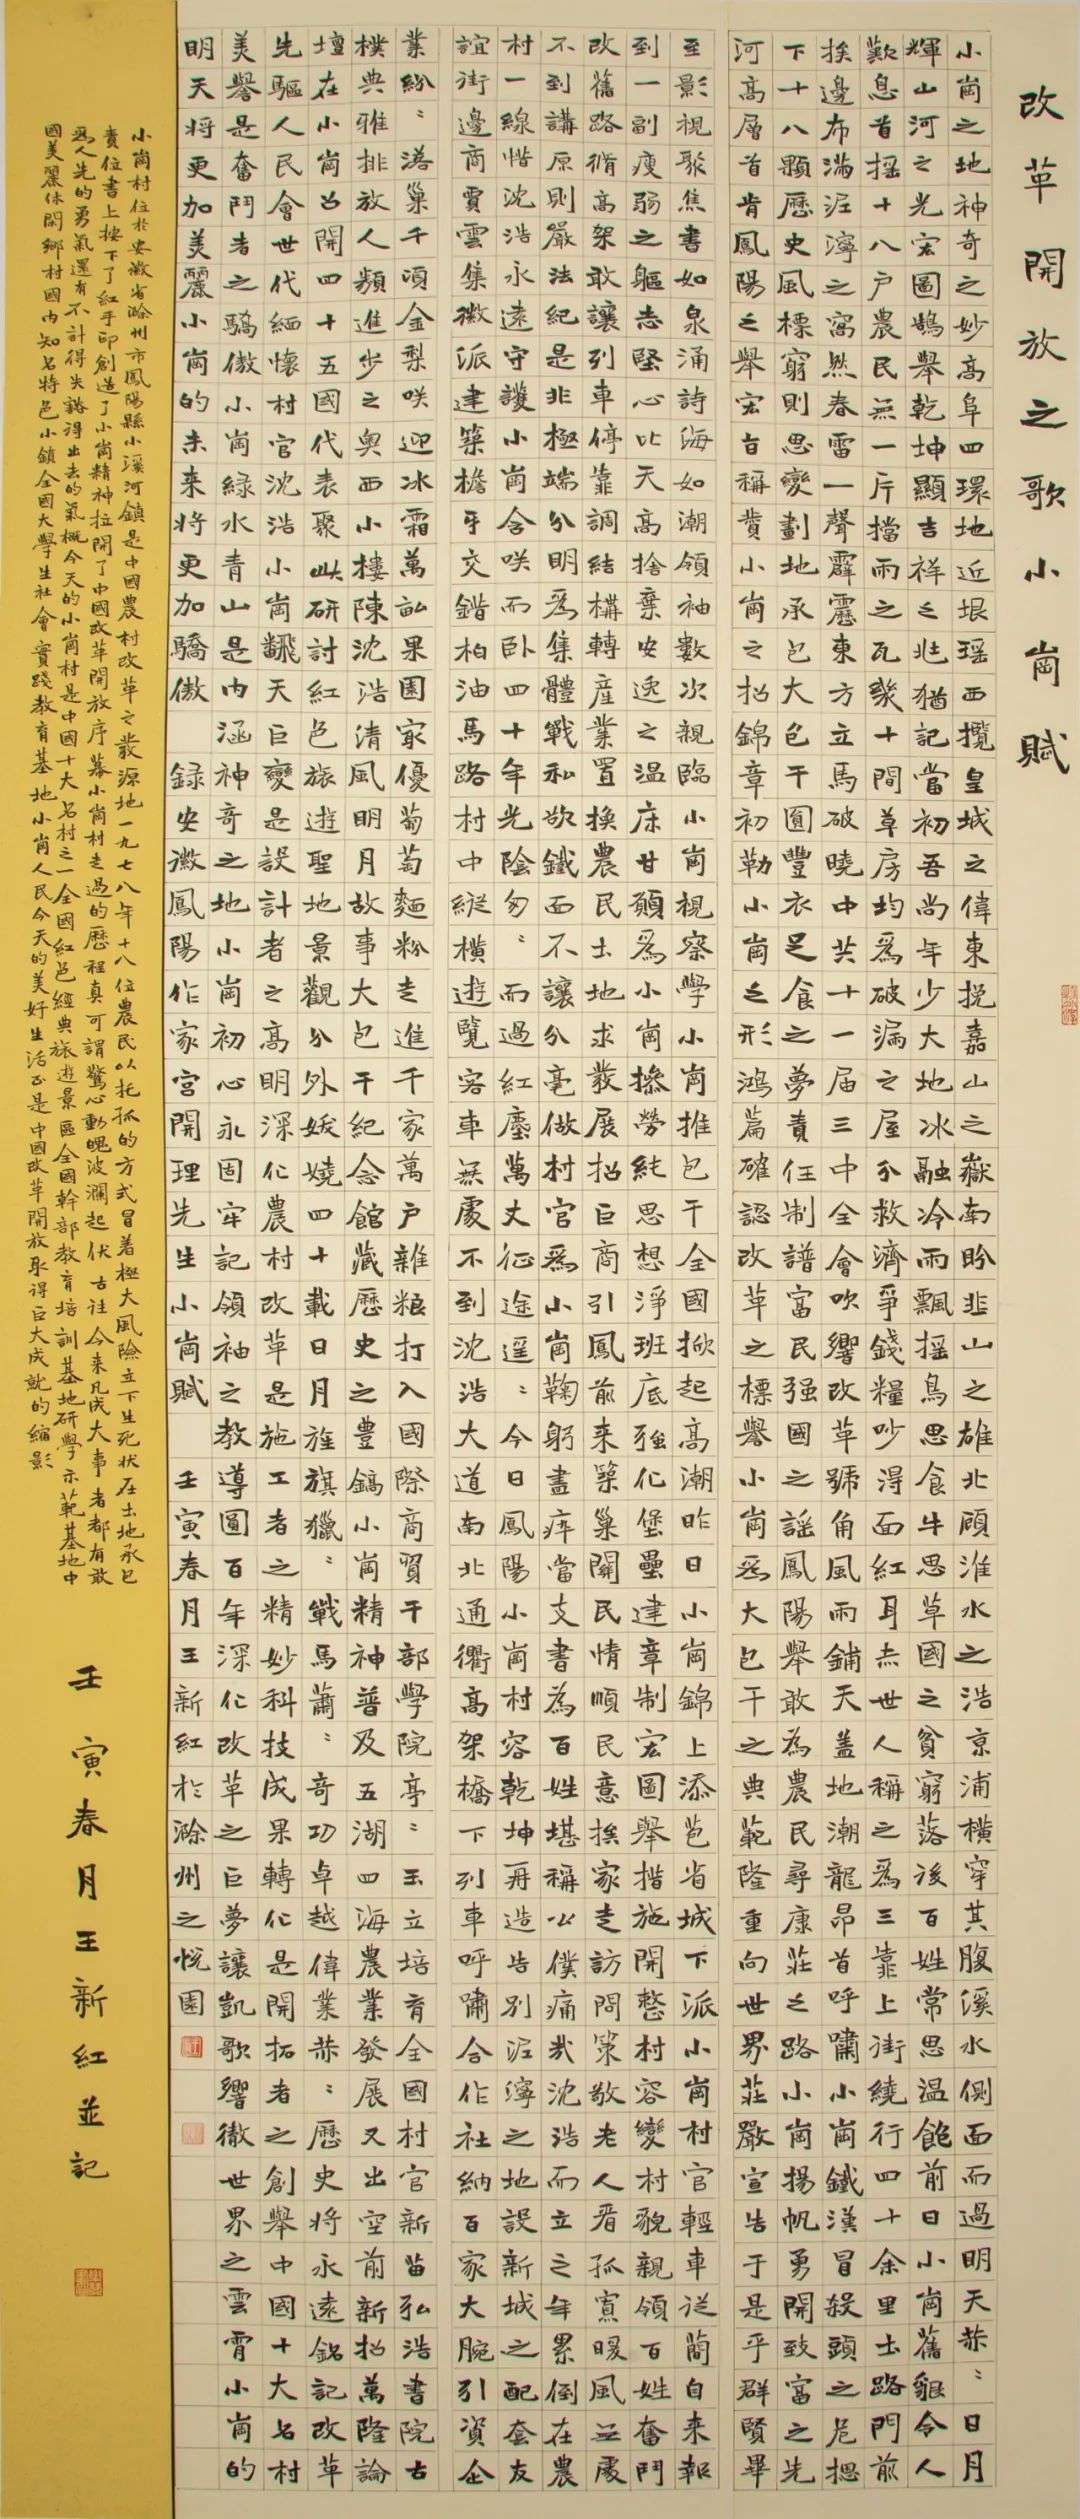 改革開放之歌小崗賦
小崗之地神奇之妙高阜四環地近垠瑶西攬皇城之偉東挽嘉山之嶽南盼韭山之雄北顧淮水之浩京浦横穿其腹溪水侧面而過明天恭〻日月
輝山河之光宏圖鵠舉乾坤顯吉祥之兆猶記當初吾尚年少大地冰融冷雨飄摇鳥思食牛思草國之貧窮落後百姓常思温飽前日小崗舊貌令人
歎息首摇十八户農民無一片擋雨之瓦幾十間草房均爲破漏之屋分救濟爭錢糧吵得面紅耳赤世人稱之爲三靠上街繞行四十余里土路門前
挨邊布滿泥濘之窩然春雷一聲霹靂東方立馬破曉中共十一届三中全會吹響改革號角風雨鋪天蓋地潮龍昂首呼嘯小崗鐵漢冒殺頭之危摁
下十八顆歷史風標窮則思變劃地承包大包干圓豐衣足食之夢責任制譜富民强國之謡鳳陽舉敢為農民尋康莊之路小崗揚帆勇開致富之先
河高層首肯鳳陽之舉宏旨稱贊小崗之招錦章初勒小崗之形鴻篇確認改革之標譽小崗爲大包干之典範隆重向世界莊嚴宣告于是乎群賢畢
至影視聚焦書如泉涌詩海如潮領袖數次親臨小崗視察學小崗推包干全國掀起高潮昨日小崗錦上添苞省城下派小崗村官輕車從蘭自来報
到一副瘦弱之軀志堅心比天高捨棄安逸之温床甘願爲小崗操勞純思想淨班底强化堡壘建章制宏圖舉措施開整村容變村貌親領百姓奮鬥
改舊路脩高架敢讓列車停靠調結構轉産業置換農民土地求發展招巨商引鳳前来築巢開民情順民意挨家走訪問策敬老人看孤寡暖風亞處
不到講原則嚴法紀是非極端分明爲集體戰私欲鐵面不讓分毫做村官爲小崗鞠躬盡瘁當支書為百姓堪稱公僕痛哉沈浩而立之年累倒在農
村一線惜沈浩永遠守護小崗含咲而卧四十年光陰匆〻而過紅塵萬丈征途遥〻今日鳳陽小崗村容乾坤再造告别泥濘之地設新城之配套友
誼街邊商賈雲集徽派建築檐牙交錯柏油馬路村中縱横遊覽客車無處不到沈浩大道南北通衢高架橋下列車呼嘯合作社納百家大腕引資企
業紛〻落巢千頃金梨咲迎冰霜萬畝果園家優葡萄麵粉走進千家萬户雜粮打入國際商貿干部學院亭〻玉立培育全國村官新苗弘浩書院古
樸典雅排放人類進步之奥西小樓陳沈浩清風明月故事大包干紀念館藏歷史之豊鎬小崗精神普及五湖四海農業發展又出空前新招萬隆論
壇在小崗召開四十五國代表聚此研討紅色旅遊聖地景觀分外妖嬈四十載日月旌旗獵〻戰馬蕭〻奇功卓越偉業恭〻歷史將永遠銘記改革
先驅人民會世代緬懷村官沈浩小崗飜天巨變是設計者之高明深化農村改革是施工者之精妙科技成果轉化是開拓者之創舉中國十大名村
美譽是奮鬥者之驕傲小崗緑水青山是内涵神奇之地小崗初心永固牢記領袖之教導圓百年深化改革之巨夢讓凱歌響徹世界之雲霄小崗的
明天将更加美麗小崗的未来将更加驕傲 録安徽鳳陽作家宫開理先生小崗賦 壬寅春月王新紅於滁州之悦園
小崗村位於安徽省滁州市鳳陽縣小溪河鎮是中國農村改革之發源地一九七八年十八位農民以托孤的方式冒着極大風險立下生死状在土地承包
責位書上按下了紅手印創造了小崗精神拉開了中國改革開放序幕小崗村走過的歷程真可謂驚心動魄波瀾起伏古往今来凡成大事者都有敢
爲人先的勇氣還有不計得失豁得出去的氣概今天的小崗村是中國十大名村之一全國紅色經典旅遊景區全國幹部教育培訓基地研學示範基地中
國美麗休閑鄉村國内知名特色小鎮全國大學生社會實踐教育基地小崗人民今天的美好生活正是中國改革開放取得巨大成就的縮影
壬寅春月王新紅並記